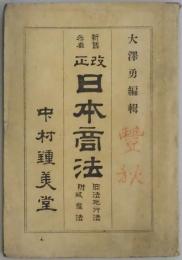 大澤勇編輯
新舊
對照
改正
日本商法
舊法施行法
附破產法
中村鍾美堂